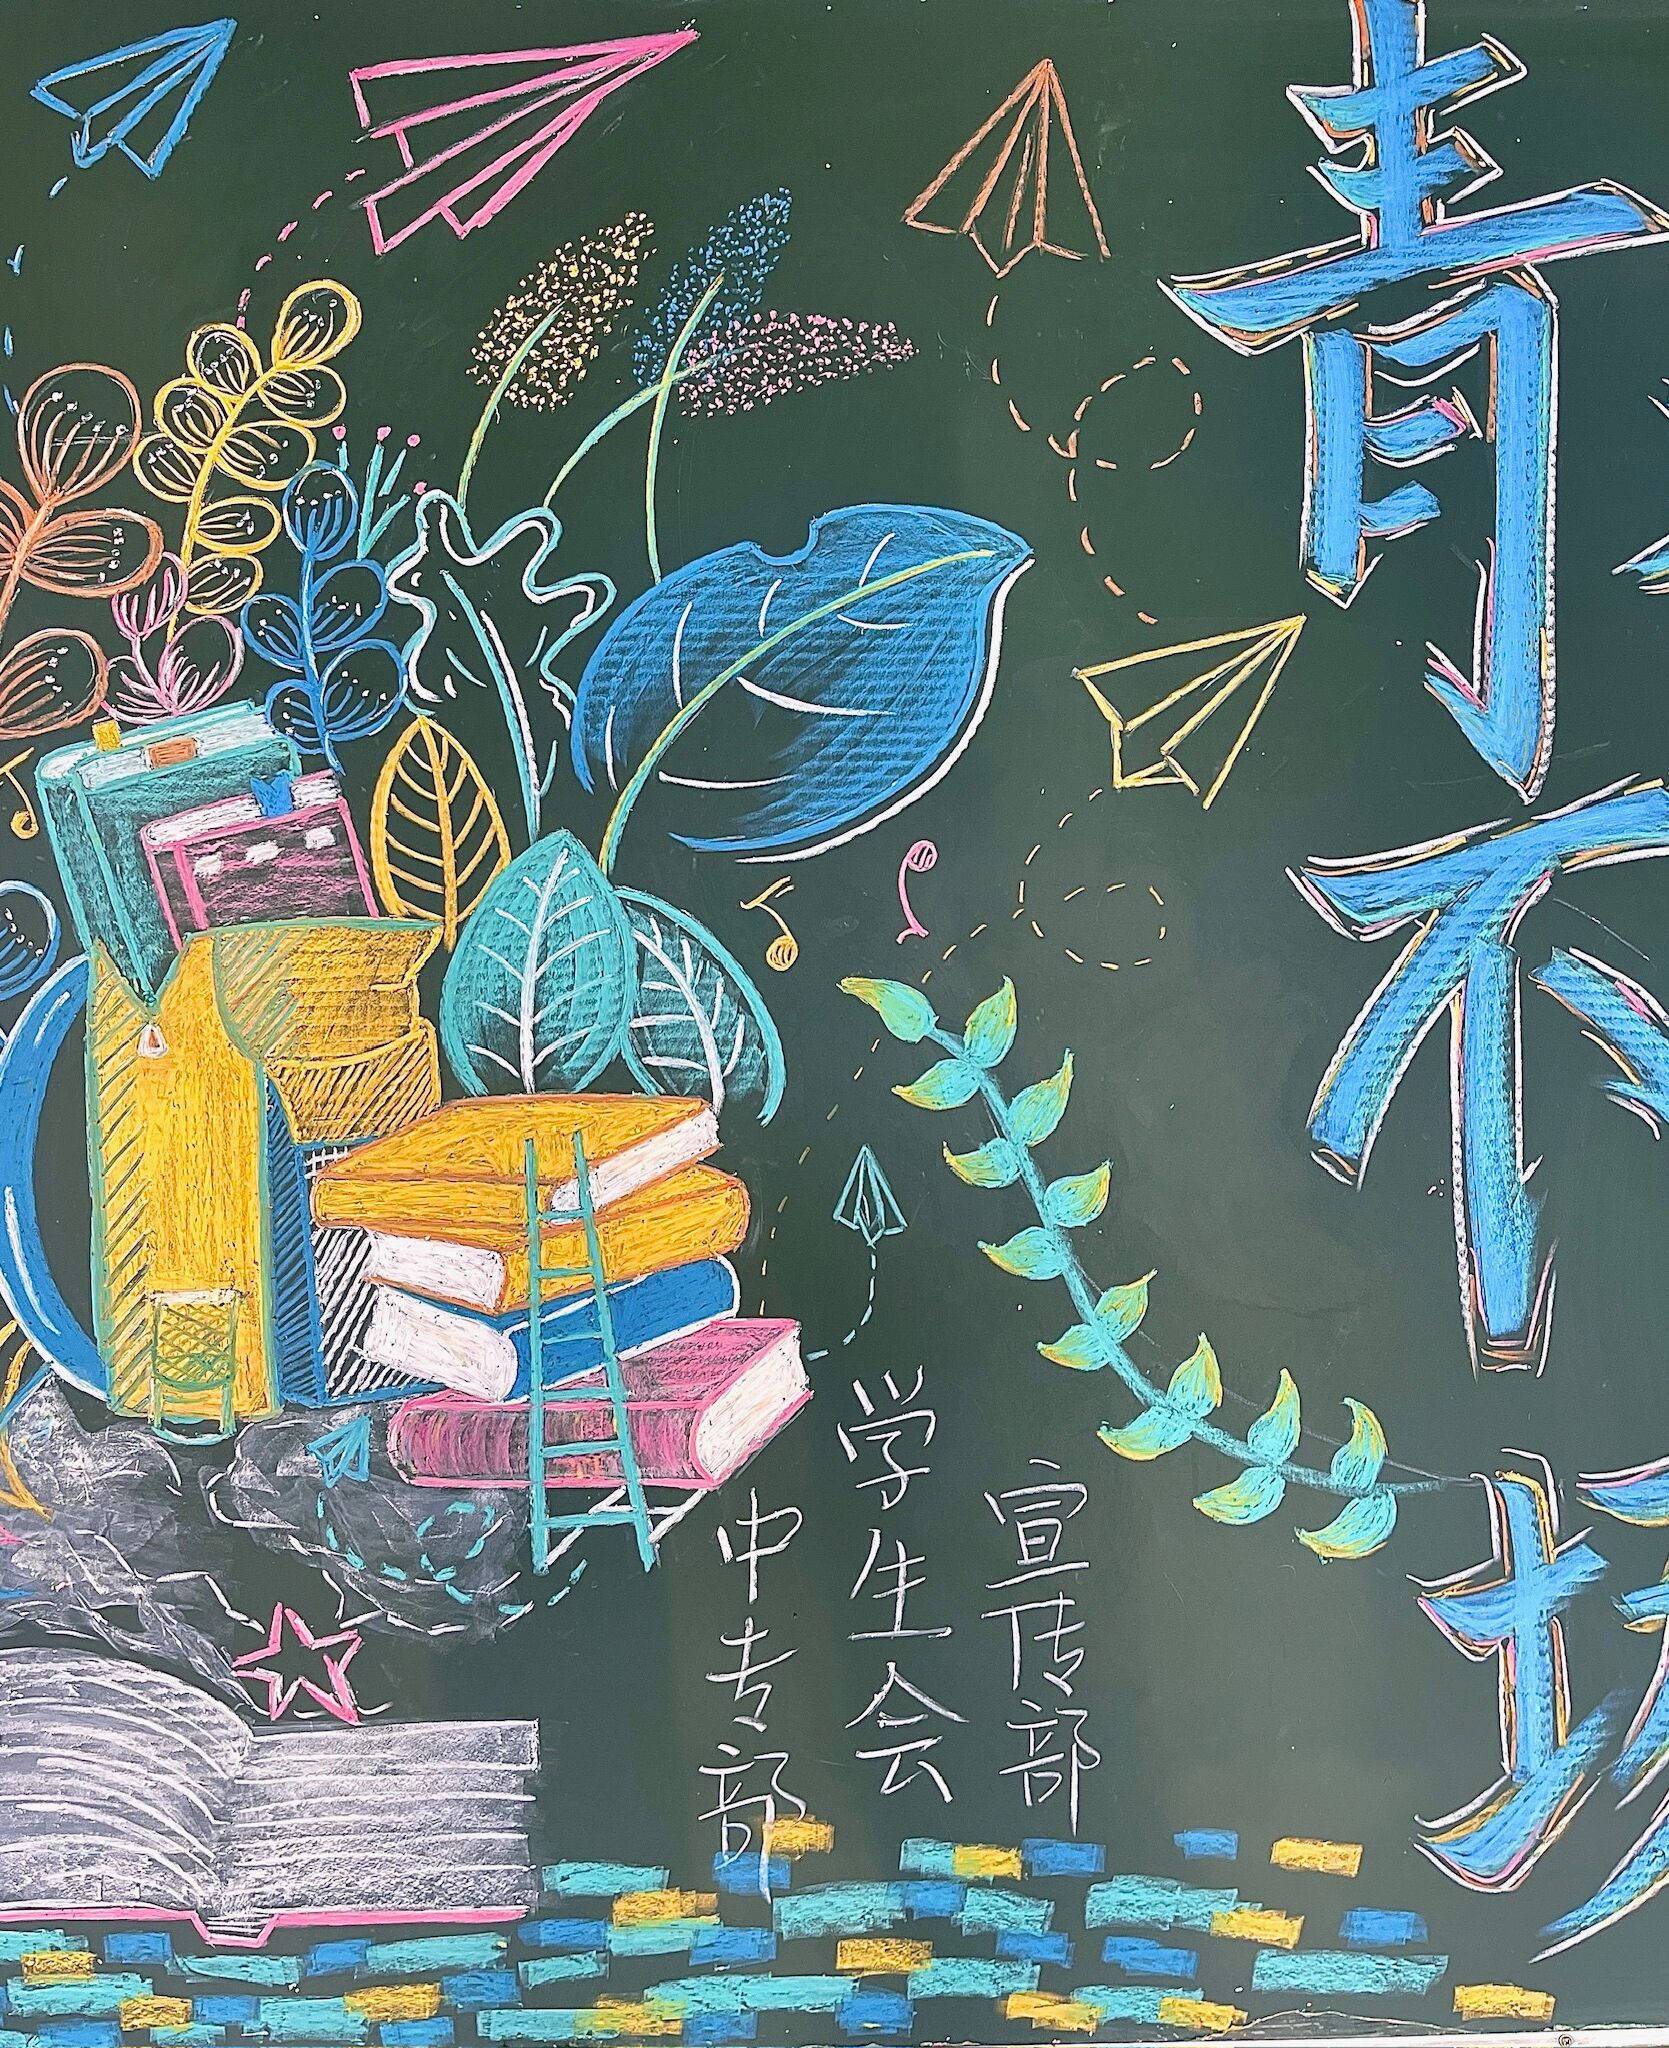 青
不
中专部
学生会
宣传部